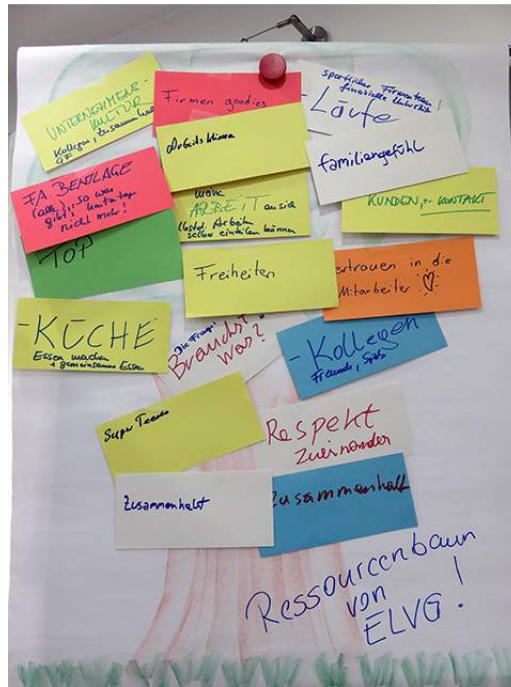 UNTERNEHMENS-
KULTUR
Kollegen, Zusammenhalt
GF
Firmen goodies
sportliches Firmenteam/
finanzielle
-Läufe
Arbeitsklima
familiengefühl
FA. BENTLAGE
so was
gibt's heute
nicht mehr!
TOP
ARBEIT an sich
Arbeit
selber einteilen können
KUNDEN,- KONTAKT
Freiheiten
ertrauen in die
Mitarbeiter
-KÜCHE
Essen machen
+ gemeinsames Essen
"Die Frage"
Brauchst
was?
-Kollegen
Freunde, Spaß
Super Team
Respekt
zueinander
Zusammenhalt
Zusammenhalt
Ressourcenbaum
von
ELVG!